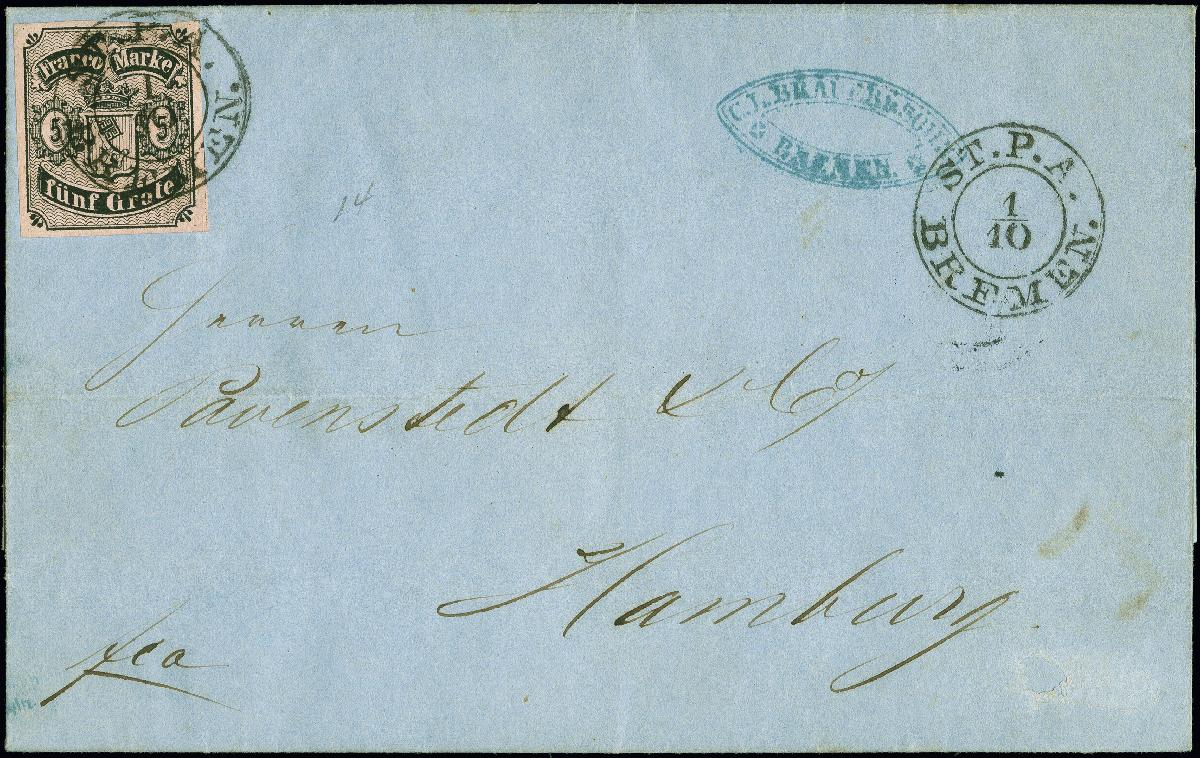 Franco Marke
5 5
fünf Grote
C. L. BRAUER & SOHN
BREMEN.
ST. P. A.
1/10
BREMEN.
14
Herren
Pavenstedt & Co
Hamburg.
fco